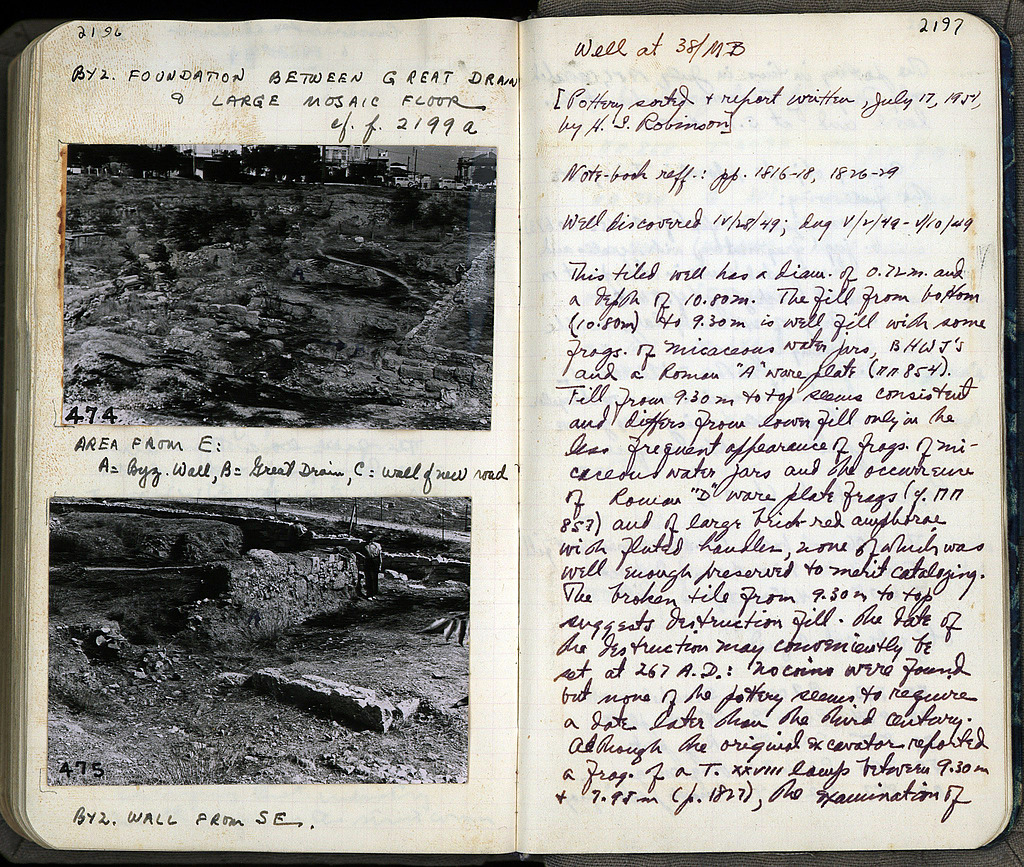 2196
BYZ. FOUNDATION BETWEEN GREAT DRAIN
& LARGE MOSAIC FLOOR
cf. p. 2199a
474
AREA FROM E:
A= Byz. Wall, B= Great Drain, C= wall of new road
475
BYZ. WALL FROM SE.
2197
Well at 38/MB
[Pottery sorted + report written, July 17, 1951,
by H. S. Robinson]
Note-book reff.: pp. 1816-18, 1826-29
Well discovered IV/28/49; dug V/2/49 - V/10/49
This tiled well has a diam. of 0.72 m. and
a depth of 10.80 m. The fill from bottom
(10.80m) to 9.30 m is well fill with some
frags. of micaceous water jars, BHWJ's
and a Roman "A" ware plate (ΠΠ 854).
Fill from 9.30 m to top seems consistent
and differs from lower fill only in the
less frequent appearance of frags. of mi-
caceous water jars and the occurrence
of Roman "D" ware plate frags (cf. ΠΠ
857) and of large brick-red amphorae
with fluted handles, none of which was
well enough preserved to merit cataloging.
The broken tile from 9.30 m to top
suggests destruction fill. The date of
the destruction may conveniently be
set at 267 A.D.: no coins were found
but none of the pottery seems to require
a date later than the third century.
Although the original excavator reported
a frag. of a T. XXVIII lamp between 9.30 m
+ 7.95 m (p. 1827), the examination of